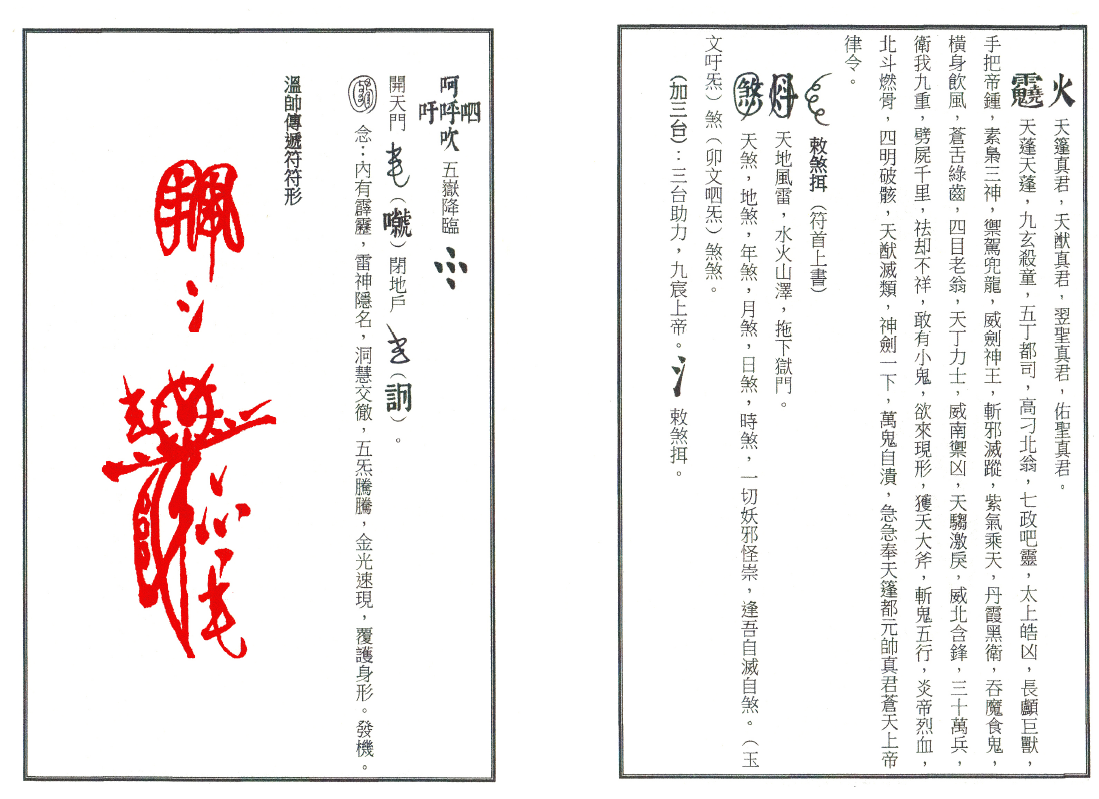 火 天篷真君，天猷真君，翌聖真君，佑聖真君。
天蓬天蓬，九玄殺童，五丁都司，高刁北翁，七政吧靈，太上皓凶，長顱巨獸，
手把帝鍾，素梟三神，禦駕兜龍，威劍神王，斬邪滅蹤，紫氣乘天，丹霞黑衛，吞魔食鬼，
橫身飲風，蒼舌綠齒，四目老翁，天丁力士，威南禦凶，天騶激戾，威北含鋒，三十萬兵，
衛我九重，劈屍千里，祛却不祥，敢有小鬼，欲來現形，獲天大斧，斬鬼五行，炎帝烈血，
北斗燃骨，四明破骸，天猷滅類，神劍一下，萬鬼自潰，急急奉天篷都元帥真君蒼天上帝
律令。
敕煞挕（符首上書）
天地風雷，水火山澤，拖下獄門。
煞 天煞，地煞，年煞，月煞，日煞，時煞，一切妖邪怪祟，逢吾自滅自煞。（玉
文吁炁）煞（卯文呬炁）煞煞。
（加三台）：三台助力，九宸上帝。敕煞挕。
呬
呵呼吹 五嶽降臨
吁
開天門（）閉地戶（）。
念：內有霹靂，雷神隱名，洞慧交徹，五炁騰騰，金光速現，覆護身形。發機。
溫帥傳遞符符形